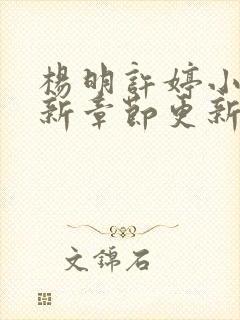 楊明許婷小
新章節更新
文錦石